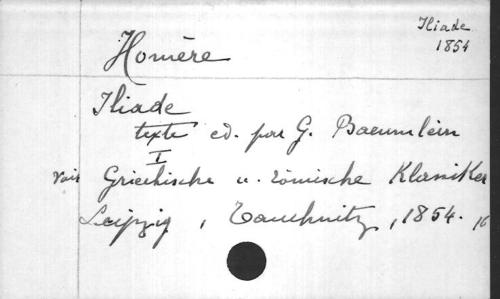 Iliade
1854
Homère
Iliade
texte ed. par G. Baeumlein
I
Voir Griechische u. römische Klassiker
Leipzig, Tauchnitz, 1854. 16